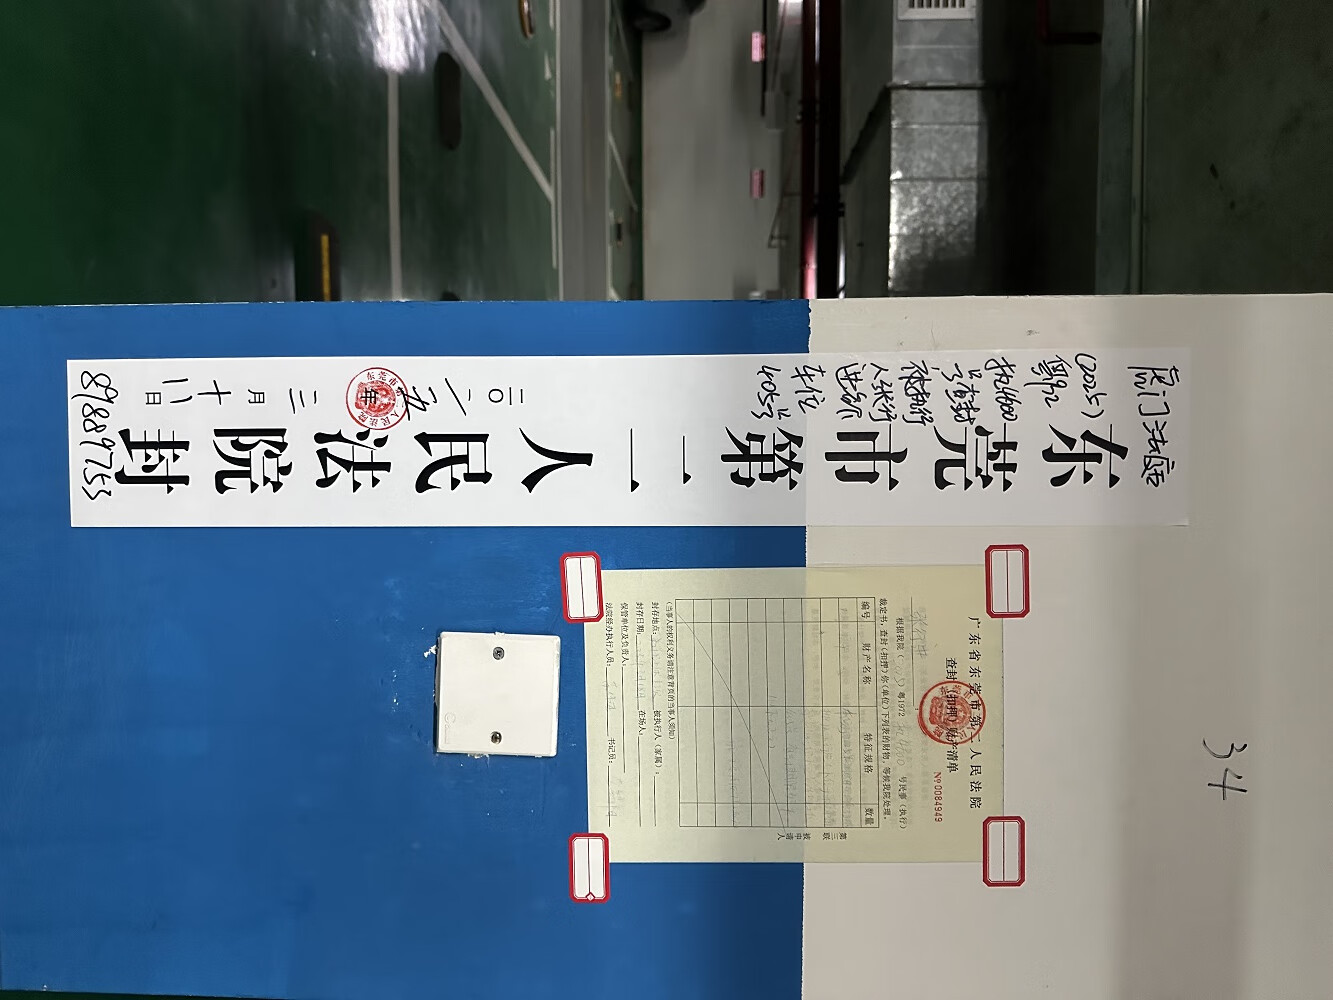 34
虎门法庭
东莞市第二人民法院封
(2025)
粤1972
执4600
号查封
被执行
人张行
进名下
车位
4053
二〇二五年
二月十八日
89889753
广东省东莞市第二人民法院
查封(扣押)财产清单
№0084949
根据我院( )粤1972 号民事(执行)
裁定书,查封(扣押)你(单位)下列表的财物,等候我院处理。
编号 财产名称 特征规格 数量
第三联 被申请人
(当事人的权利义务请注意背页的当事人须知)
封存地点: 被执行人(家属):
封存日期: 在场人:
保管单位及负责人:
法院经办执行人员: 书记员: